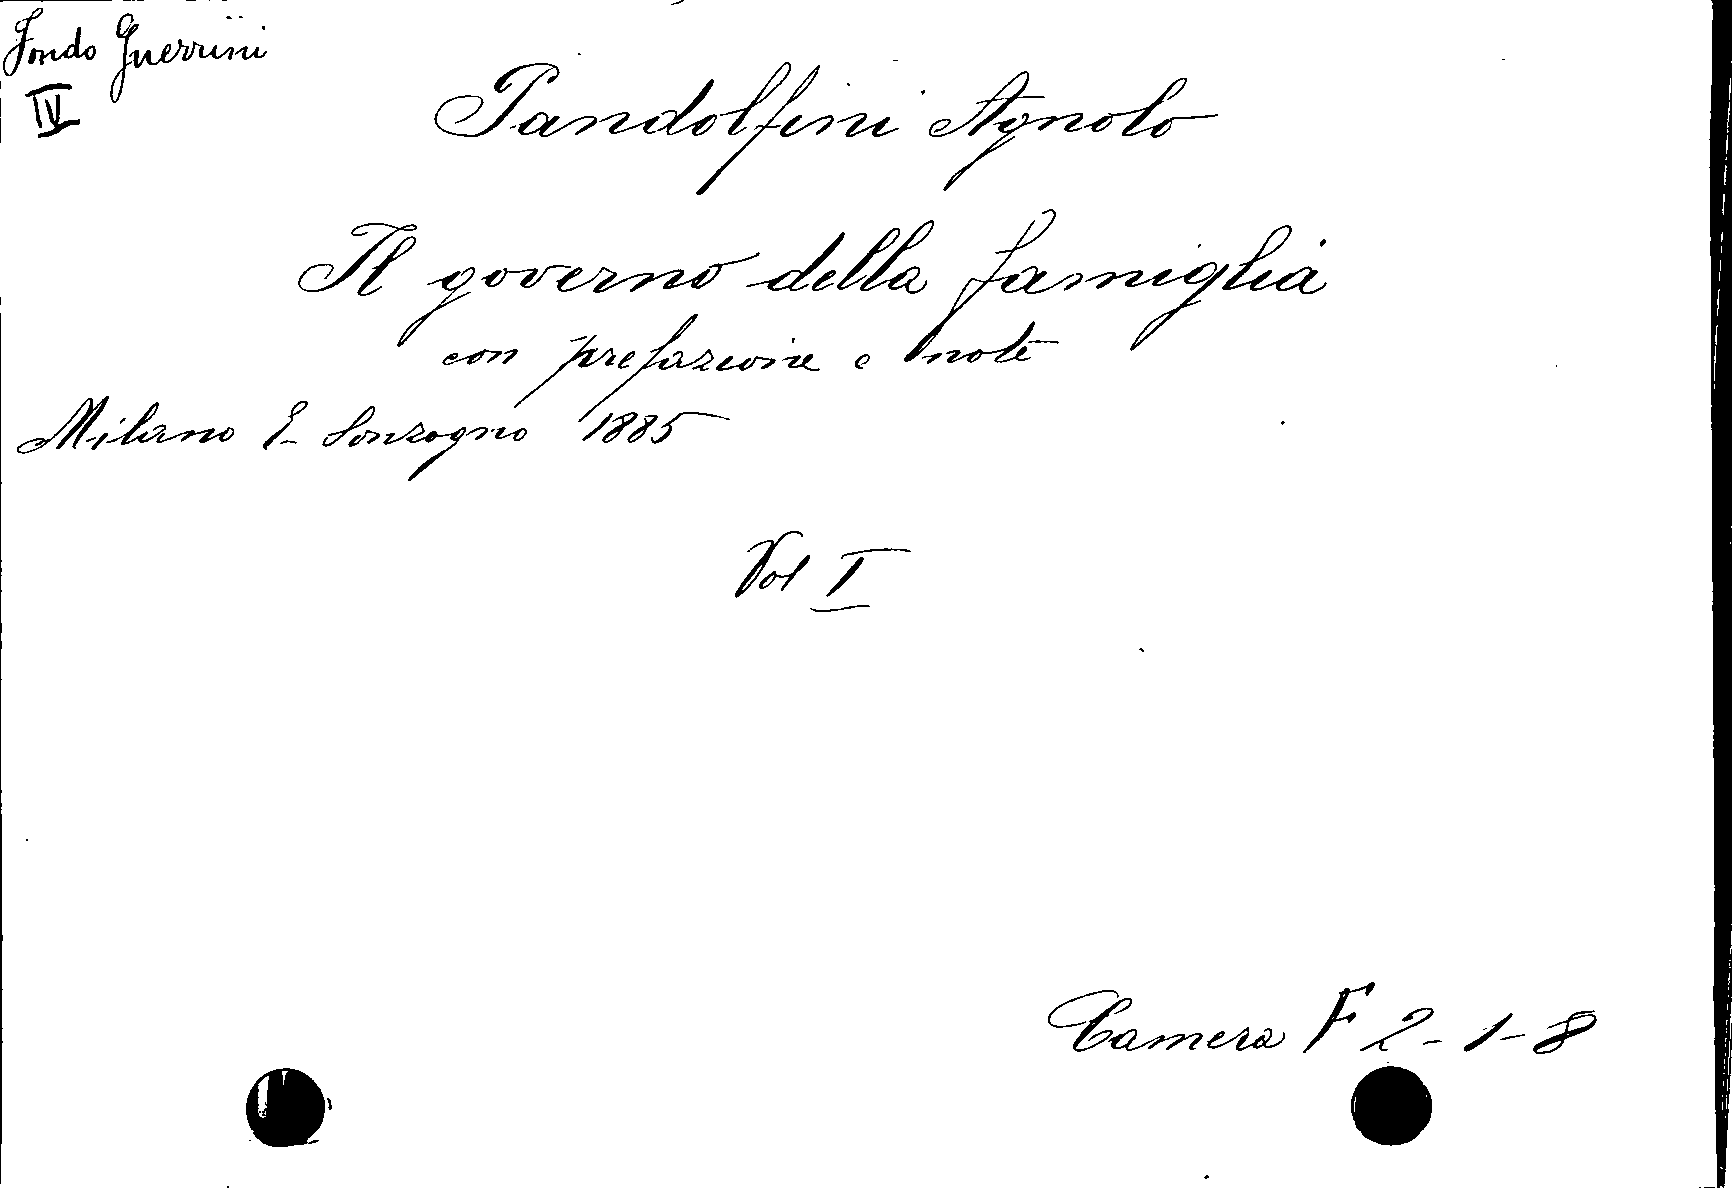 Fondo Guerrini
IV
Pandolfini Agnolo
Il governo della famiglia
con prefazione e note
Milano E. Sonzogno 1885
Vol I
Camera F 2-1-8